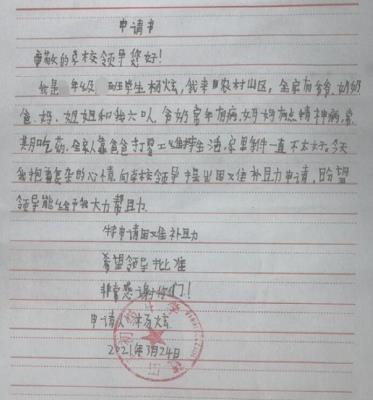 申请书
尊敬的学校领导您好!
我是 年级 班学生杨炫,我来自农村山区,全家有爷、奶奶
爸、妈、姐姐和我六口人,爷奶常年有病,妈妈有点精神病,长
期吃药,全家人靠爸爸打零工维持生活,家里条件一直不太好。今天
我抱着复杂的心情向学校领导提出困难补助申请,盼望
领导能给予我大力帮助
特申请困难补助
希望领导批准
非常感谢你们!
申请人杨炫
2021年3月24日